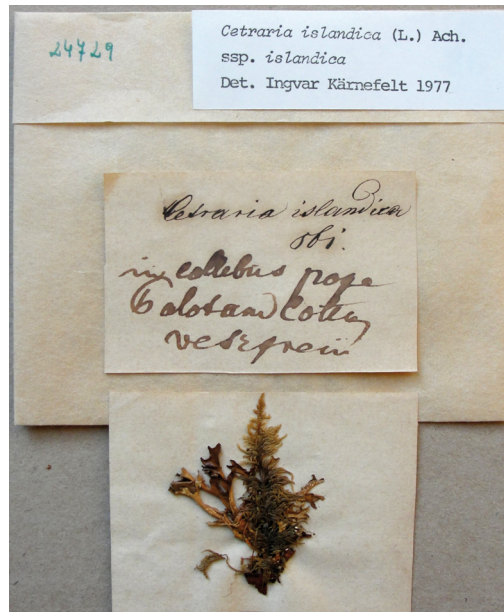 24729
Cetraria islandica (L.) Ach.
ssp. islandica
Det. Ingvar Kärnefelt 1977
Cetraria islandica
in collibus prope